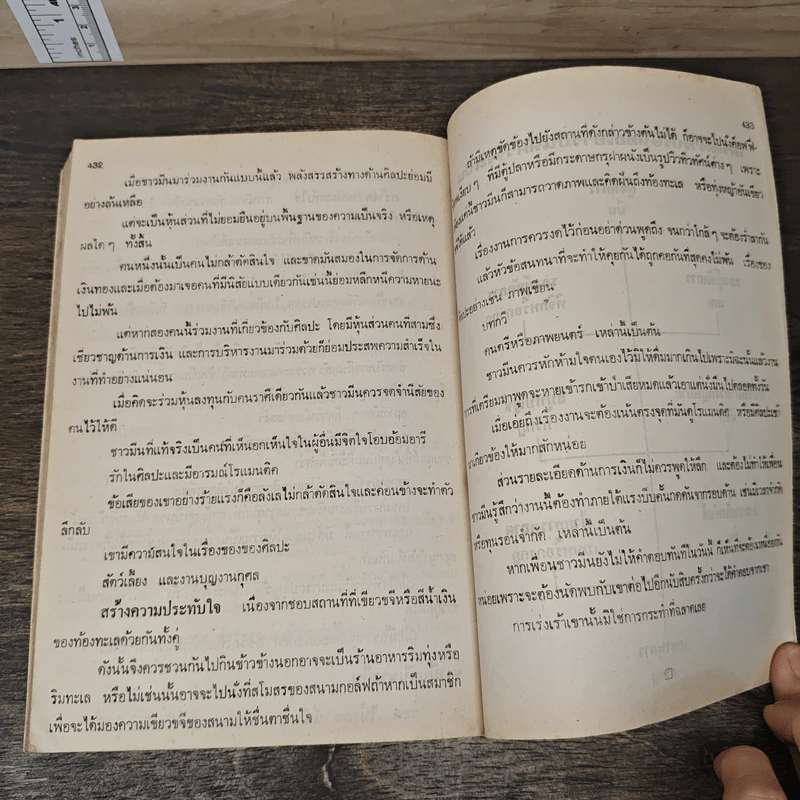 432
เมื่อชาวมีนมาร่วมงานกันแบบนี้แล้ว พลังสรรสร้างทางด้านศิลปะย่อมมี
อย่างล้นเหลือ
แต่จะเป็นหุ้นส่วนที่ไม่ยอมยืนอยู่บนพื้นฐานของความเป็นจริง หรือเหตุ
ผลใด ๆ ทั้งสิ้น
คนหนึ่งนั้นเป็นคนไม่กล้าตัดสินใจ และขาดมันสมองในการจัดการด้าน
เงินทองและเมื่อต้องมาเจอคนที่มีนิสัยแบบเดียวกันเช่นนี้ย่อมหลีกหนีความหายนะ
ไปไม่พ้น
แต่หากสองคนนี้ร่วมงานที่เกี่ยวข้องกับศิลปะ โดยมีหุ้นส่วนคนที่สามซึ่ง
เชี่ยวชาญด้านการเงิน และการบริหารงานมาร่วมด้วยก็ย่อมประสพความสำเร็จใน
งานที่ทำอย่างแน่นอน
เมื่อคิดจะร่วมหุ้นลงทุนกับคนราศีเดียวกันแล้วชาวมีนควรจดจำนิสัยของ
ตนไว้ให้ดี
ชาวมีนที่แท้จริงเป็นคนที่เห็นอกเห็นใจในผู้อื่นมีจิตใจโอบอ้อมอารี
รักในศิลปะและมีอารมณ์โรแมนติค
ข้อเสียของเขาอย่างร้ายแรงก็คือลังเลไม่กล้าตัดสินใจและค่อนข้างจะทำตัว
ลึกลับ
เขามีความสนใจในเรื่องของของศิลปะ
สัตว์เลี้ยง และงานบุญงานกุศล
สร้างความประทับใจ เนื่องจากชอบสถานที่ที่เขียวขจีหรือสีน้ำเงิน
ของท้องทะเลด้วยกันทั้งคู่
ดังนั้นจึงควรชวนกันไปกินข้าวข้างนอกอาจจะเป็นร้านอาหารริมทุ่งหรือ
ริมทะเล หรือไม่เช่นนั้นอาจจะไปนั่งที่สโมสรของสนามกอล์ฟถ้าหากเป็นสมาชิก
เพื่อจะได้มองความเขียวขจีของสนามให้ชื่นตาชื่นใจ
433
ถ้ามีเหตุขัดข้องไปยังสถานที่ดังกล่าวข้างต้นไม่ได้ ก็อาจจะไปนั่งค็อฟฟี่-
เงียบ ๆ ที่มีตู้ปลาหรือมีกระดาษกรุฝาผนังเป็นรูปวิวทิวทัศน์ต่าง ๆ เพราะ
แค่นี้ชาวมีนก็สามารถวาดภาพและคิดฝันถึงท้องทะเล หรือทุ่งหญ้าอันเขียว
ได้แล้ว
เรื่องงานการควรงดไว้ก่อนอย่าด่วนพูดถึง จนกว่าใกล้ๆ จะต้องร่ำลากัน
แล้วหัวข้อสนทนาที่จะทำให้คุยกันได้ถูกคอกันที่สุดคงไม่พ้น เรื่องของ
ศิลปะอย่างเช่น ภาพเขียน
บทกวี
ดนตรีหรือภาพยนตร์ เหล่านี้เป็นต้น
ชาวมีนควรหักห้ามใจตนเองไว้มิให้ดื่มมากเกินไปเพราะมิฉะนั้นแล้วงาน
การที่เตรียมมาพูดจะหายเข้ารกเข้าป่าเสียหมดแล้วเอาแต่นั่งมึนไปตลอดทั้งวัน
เมื่อเอ่ยถึงเรื่องงานจะต้องเน้นตรงจุดที่มันดูโรแมนติค หรือมีศิลปะเข้า
มาเกี่ยวข้องให้มากสักหน่อย
ส่วนรายละเอียดด้านการเงินก็ไม่ควรพูดให้ลึก และต้องไม่ทำให้เพื่อน
ชาวมีนรู้สึกว่างานนี้ต้องทำภายใต้แรงบีบคั้นกดดันจากรอบด้าน เช่นมีเวลาจำกัด
หรือทุนรอนจำกัด เหล่านี้เป็นต้น
หากเพื่อนชาวมีนยังไม่ให้คำตอบทันทีในวันนี้ ก็เห็นทีจะต้องเหนื่อยกัน
หน่อยเพราะจะต้องนัดพบกับเขาต่อไปอีกนับสิบครั้งกว่าจะได้คำตอบจากเขา
การเร่งเร้าเขานั้นมิใช่การกระทำที่ฉลาดเลย